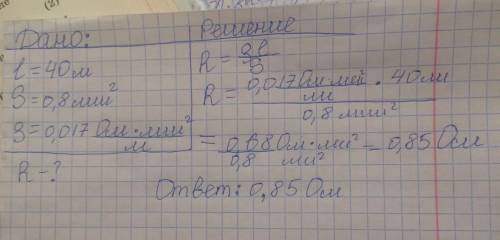 Дано:
l = 40 м
S = 0,8 мм²
ρ = 0,017 Ом · мм² / м
R - ?
Решение
R = ρl / S
R = 0,017 Ом · мм² / м · 40 м / 0,8 мм²
= 0,68 Ом · мм² / 0,8 мм² = 0,85 Ом
Ответ: 0,85 Ом